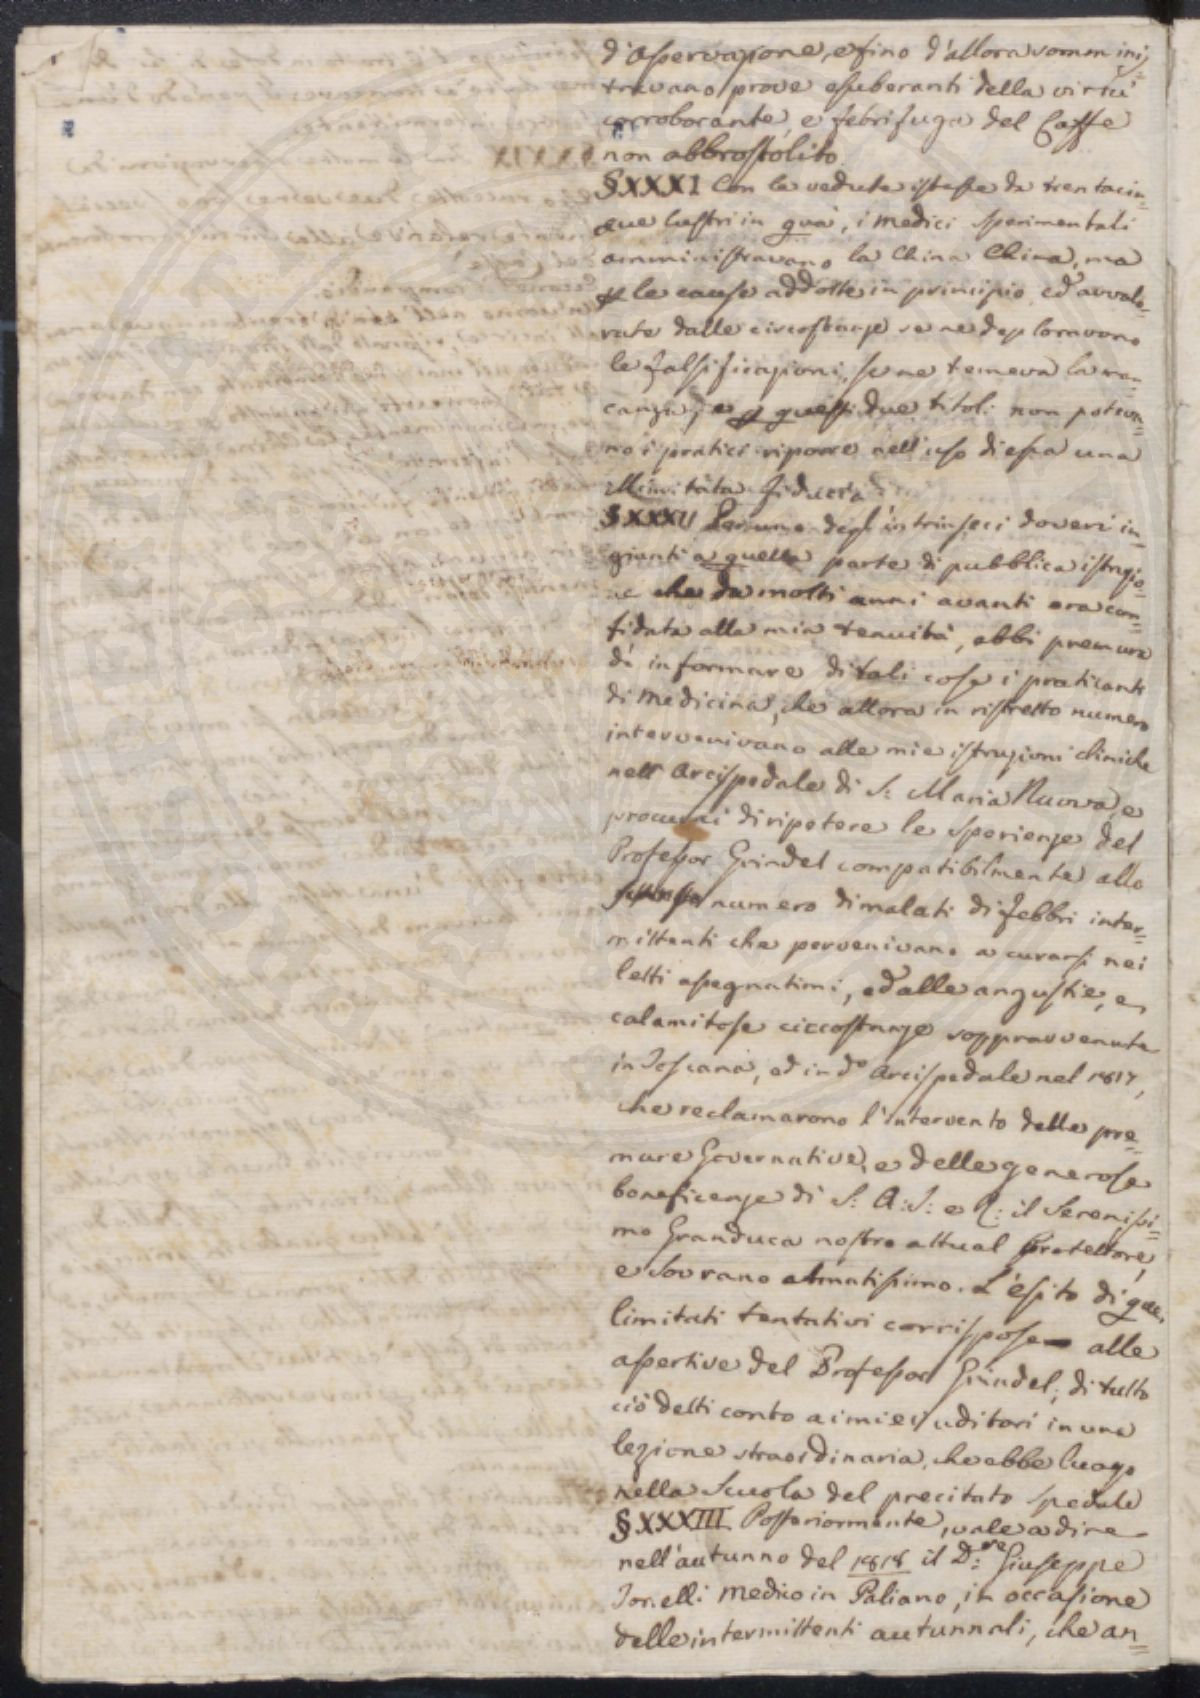 d'osservazione, e fino d'allora sommini,
travano prove esuberanti della virtù
corroborante, e febrifuga del Caffe
non abbrostolito.
§XXXI Con le vedute istesse da trentacin=
que lustri in quà, i Medici sperimentali
amministravano la China China, ma
le cause addotte in principio, ed avvalo=
rate dalle circostanze se ne deploravano
le falsificazioni, se ne temeva la man=
canza, e p questi due titoli non poteva=
no i pratici riporre nell'uso di essa una
illimitata fiducia
§XXXII Per uno degl'intrinseci doveri in=
giunti a quella parte di pubblica istruzio=
ne che da molti anni avanti era con=
fidata alla mia tenuità, ebbi premura
di informare di tali cose i praticanti
di Medicina, che allora in ristretto numero
intervenivano alle mie istruzioni cliniche
nell'Arcispedale di S: Maria Nuova, e
procurai di ripetere le sperienze del
Professor Grindel compatibilmente allo
numero di malati di febbri inter=
mittenti che pervenivano a curarsi nei
letti assegnatimi, ed alle angustie, e
calamitose ciccostanze sopravvenute
in Toscana, ed in do Arcispedale nel 1817,
che reclamarono l'intervento delle pre=
mure Governative, e delle generose
beneficenze di S: A: I: e R: il Serenissi=
mo Granduca nostro attual Protettore,
e Sovrano amatissimo. L'esito di que,
limitati tentativi corrispose alle
assertive del Professor Grindel; di tutto
ciò detti conto ai miei uditori in una
lezione straordinaria, che ebbe luogo
nella Scuola del precitato Spedale
§XXXIII Posteriormente, vale a dire
nell'autunno del 1818 il D:re Giuseppe
Tonelli Medico in Paliano, in occasione
delle intermittenti autunnali, che an=